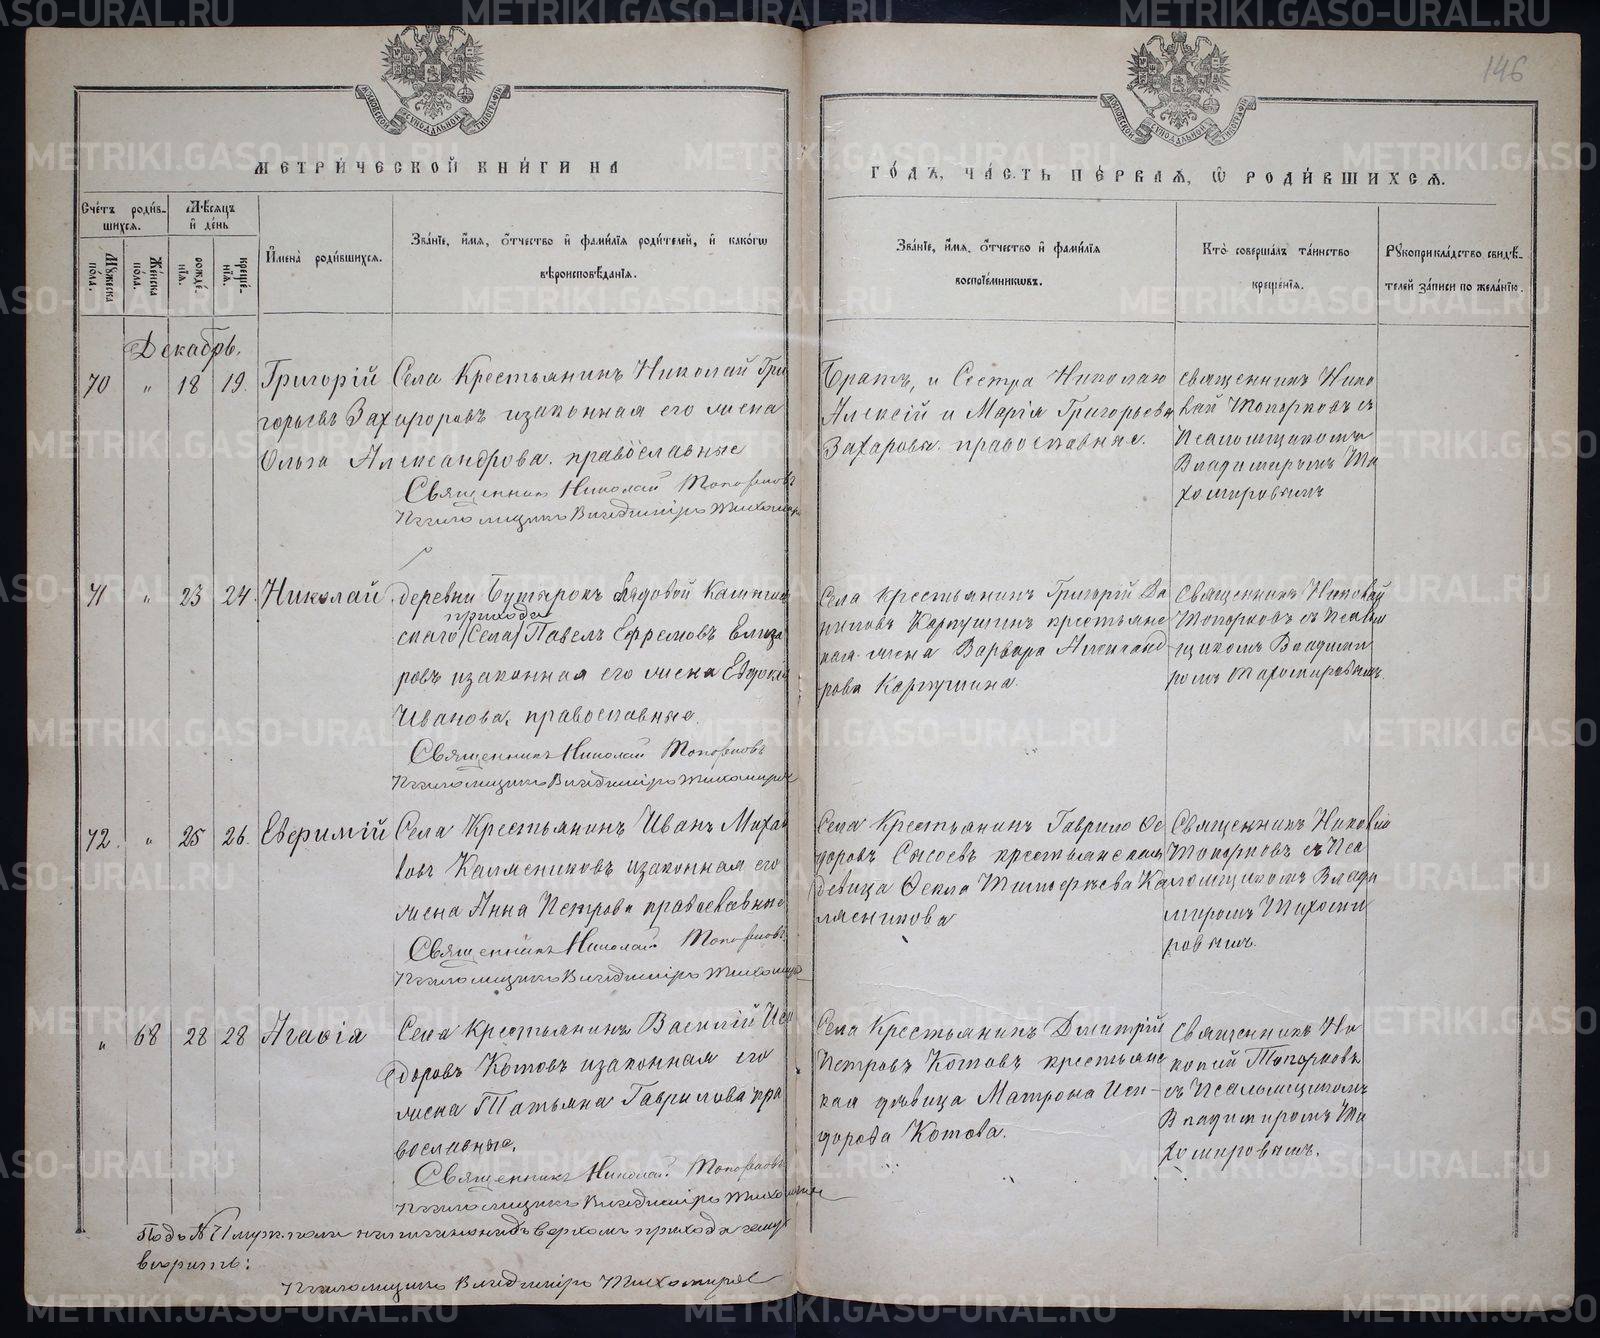 146
МЕТРИ́ЧЕСКОЙ КНИ́ГИ НА
ГО́ДЪ, ЧА́СТЬ ПЕ́РВАЯ, Ѽ РОДИ́ВШИХСѦ.
Сче́тъ роди́в-
шихся.
Мѣ́сяцъ
и де́нь
Му́жеска
по́ла.
Же́нска
по́ла.
рожде́-
нія.
креще́-
нія.
Имена̀ роди́вшихся.
Зва́нїе, и́мѧ, ѻ҆́тчество и фами́лїѧ роди́телей, и како́гѡ
вѣроисповѣ́данїѧ.
Зва́нїе, и́мѧ, ѻ҆́тчество и фами́лїѧ
воспрїе́мникѡвъ.
Кто̀ соверша́лъ та́инство
креще́нїѧ.
Рꙋкоприкла́дство свидѣ́-
телей за́писи по жела́нїю.
Декабрь.
70 " 18 19. Григорій Села Крестьянинъ Николай Гри
горьевъ изаконная его жена
Ольга Александрова. православные
Священникъ Николай Топорковъ
Псаломщикъ Владиміръ Тихомировъ
Братъ, и Сестра Николаю
Алексій и Марія Григорьевы
Захаровы. православные.
священникъ Нико
лай Топорковъ съ
Псаломщикомъ
Владимиромъ Ти
хомировымъ
71 " 23 24. Николай деревни
прихода
скаго (Села) Павелъ Ефремовъ Елиза
ровъ изаконная его жена Евдокія
Иванова, православные.
Священникъ Николай Топорковъ
Псаломщикъ Владиміръ Тихомировъ
Села крестьянинъ Григорій Да
ниловъ Карпушинъ крестьянс
кая жена Варвара Александ-
рова Карпушина.
Священникъ Николай
Топорковъ съ Псалом
щикомъ Владими
ромъ Тихомировымъ.
72. " 25 26. Евфимій Села Крестьянинъ Иванъ Михай
ловъ Калмениковъ изаконная его
жена Анна Петрова православные
Священникъ Николай Топорковъ
Псаломщикъ Владиміръ Тихомировъ
Села Крестьянинъ Гаврило Ѳе
доровъ Сысоевъ крестьянская
девица Ѳекла Тимоѳеева Ка
Священникъ Николай
Топорковъ съ Пса
ломщикомъ Влади
миромъ Тихоми
ровымъ.
" 68 28 28 Агафія Села Крестьянинъ Василій Иси
доровъ Котовъ изаконная его
жена Татьяна Гаврилова пра
вославные.
Священникъ Николай Топорковъ
Псаломщикъ Владиміръ Тихомировъ
Села Крестьянинъ Дмитрій
Петровъ Котовъ крестьянс
кая дѣвица Матрона Иси-
дорова Котова.
Священникъ Ни
колай Топорковъ
съ Псаломщикомъ
Владимиромъ Ти
хомировымъ.
Подъ № 71 муж. пола написанному въ верхомъ прихода чему
верить:
Псаломщикъ Владиміръ Тихомировъ
METRIKI.GASO-URAL.RU